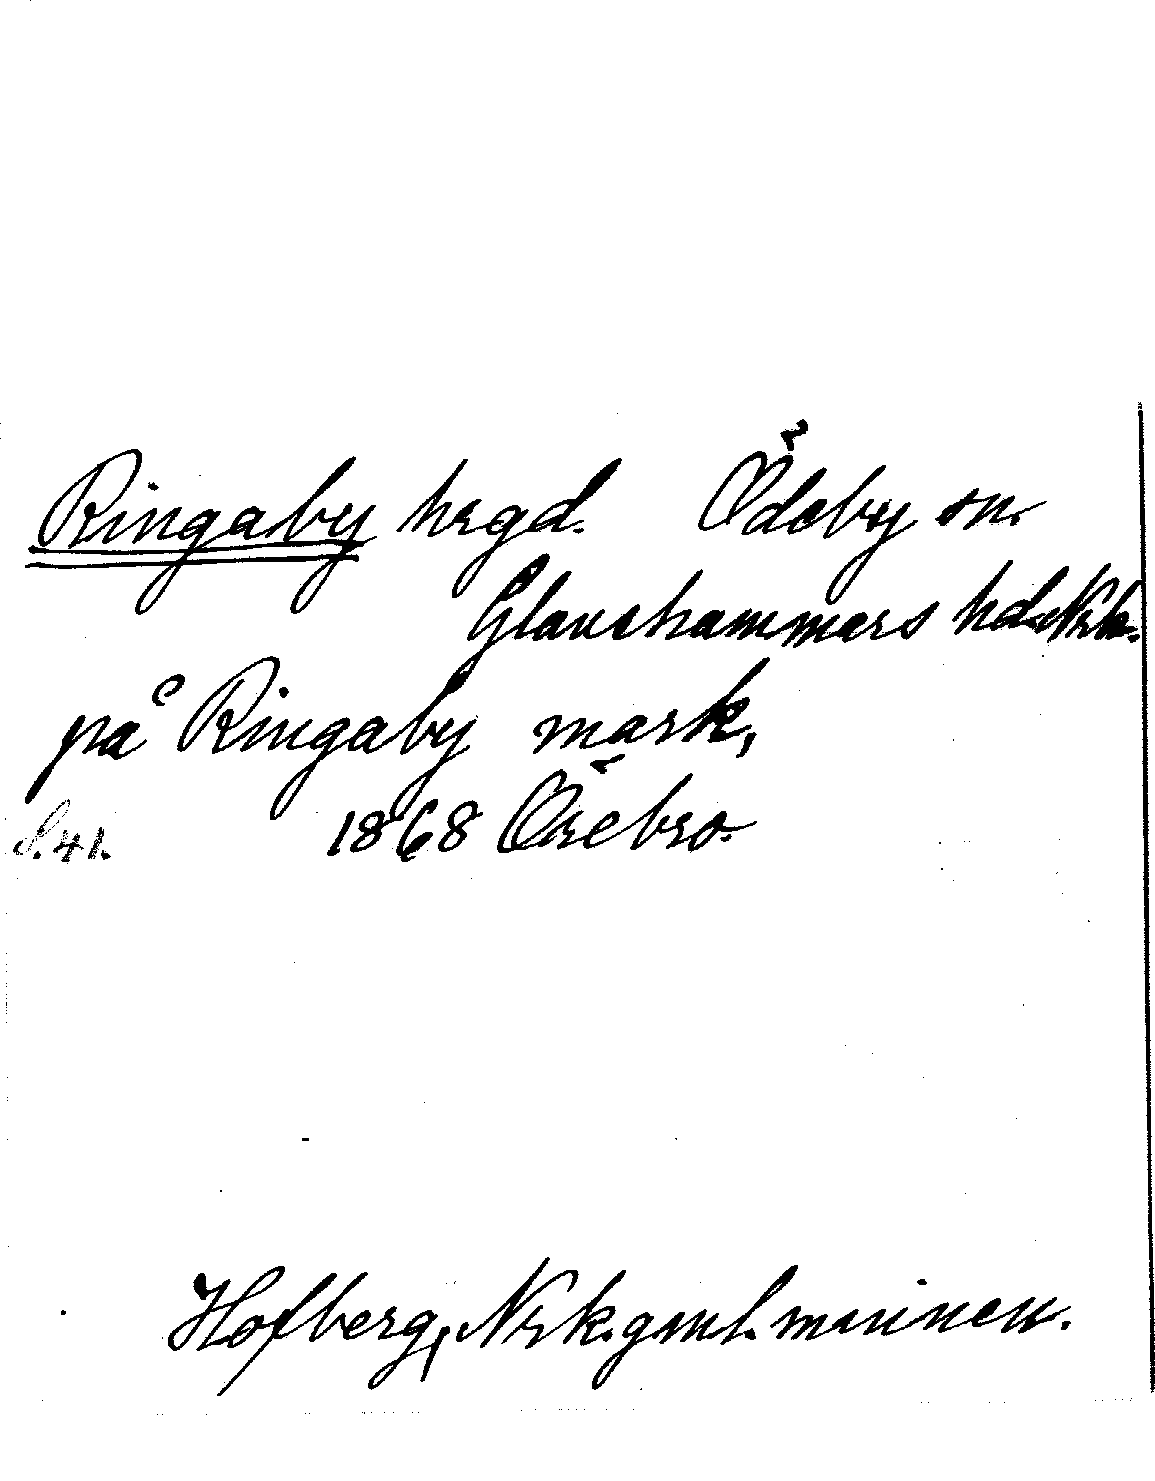 Ringaby hrgd. Ödeby sn.
Glanshammars hd. Nrk.
på Ringaby mark,
S. 41. 1868 Örebro.
Hofberg, Nrk. gml. minnen.